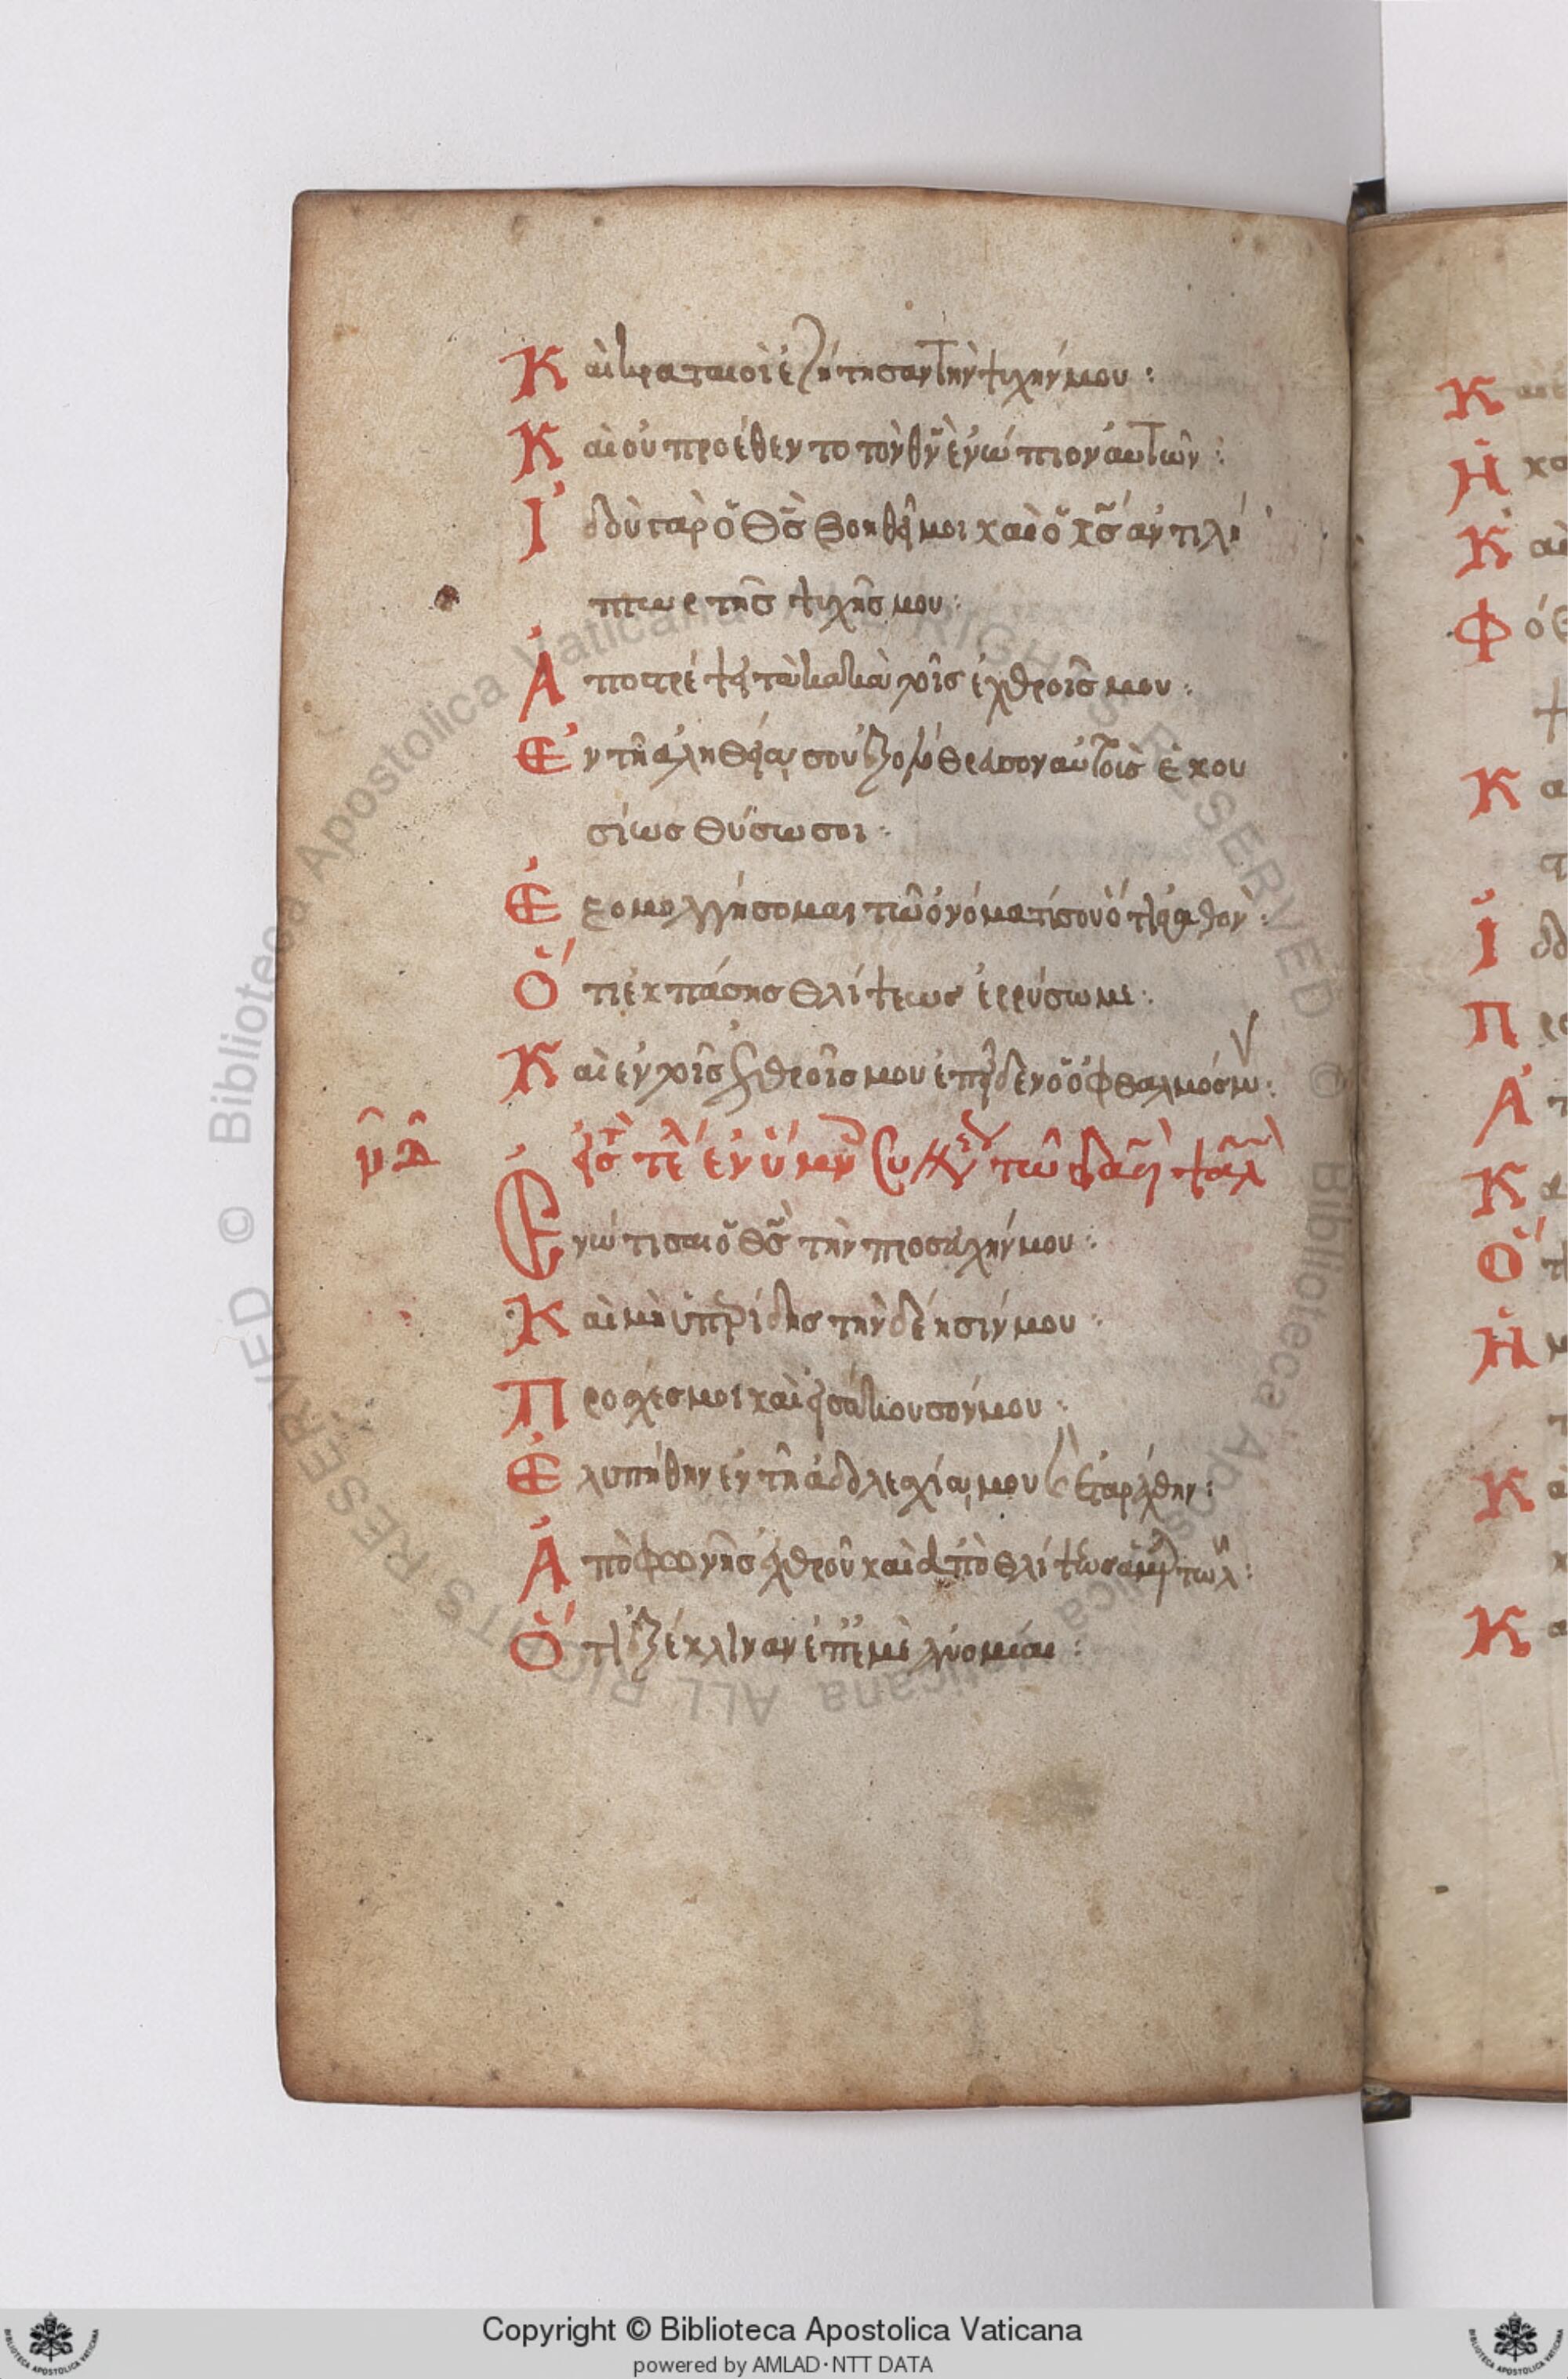 Καὶ κραταιοὶ ἐζήτησαν τὴν ψυχήν μου :
Καὶ οὐ προέθεντο τὸν θν ἐνώπιον αὐτῶν :
Ἰδοὺ γὰρ ὁ θς βοηθεῖ μοι καὶ ὁ κς ἀντιλή
πτωρ τῆς ψυχῆς μου :
Ἀποστρέψει τὰ κακὰ τοῖς ἐχθροῖς μου :
Ἐν τῇ ἀληθείᾳ σου ἐξολόθρευσον αὐτοὺς ἑκου
σίως θύσω σοι :
Ἐξομολογήσομαι τῶ ὀνόματί σου ὅτι ἀγαθόν :
Ὅτι ἐκ πάσης θλίψεως ἐρρύσω με :
Καὶ ἐν τοῖς ἐχθροῖς μου ἐπεῖδεν ὁ ὀφθαλμός μου :
νδ
Ἐνώτισαι ὁ θς τὴν προσευχήν μου :
Καὶ μὴ ὑπερίδης τὴν δέησίν μου :
Πρόσχες μοι καὶ εἰσάκουσόν μου :
Ἐλυπήθην ἐν τῇ ἀδολεσχίᾳ μου καὶ ἐταράχθην :
Ἀπὸ φωνῆς ἐχθροῦ καὶ ἀπὸ θλίψεως ἁμαρτωλ :
Ὅτι ἐξέκλιναν ἐπ' ἐμὲ ἀνομίαν :
Copyright © Biblioteca Apostolica Vaticana
powered by AMLAD·NTT DATA